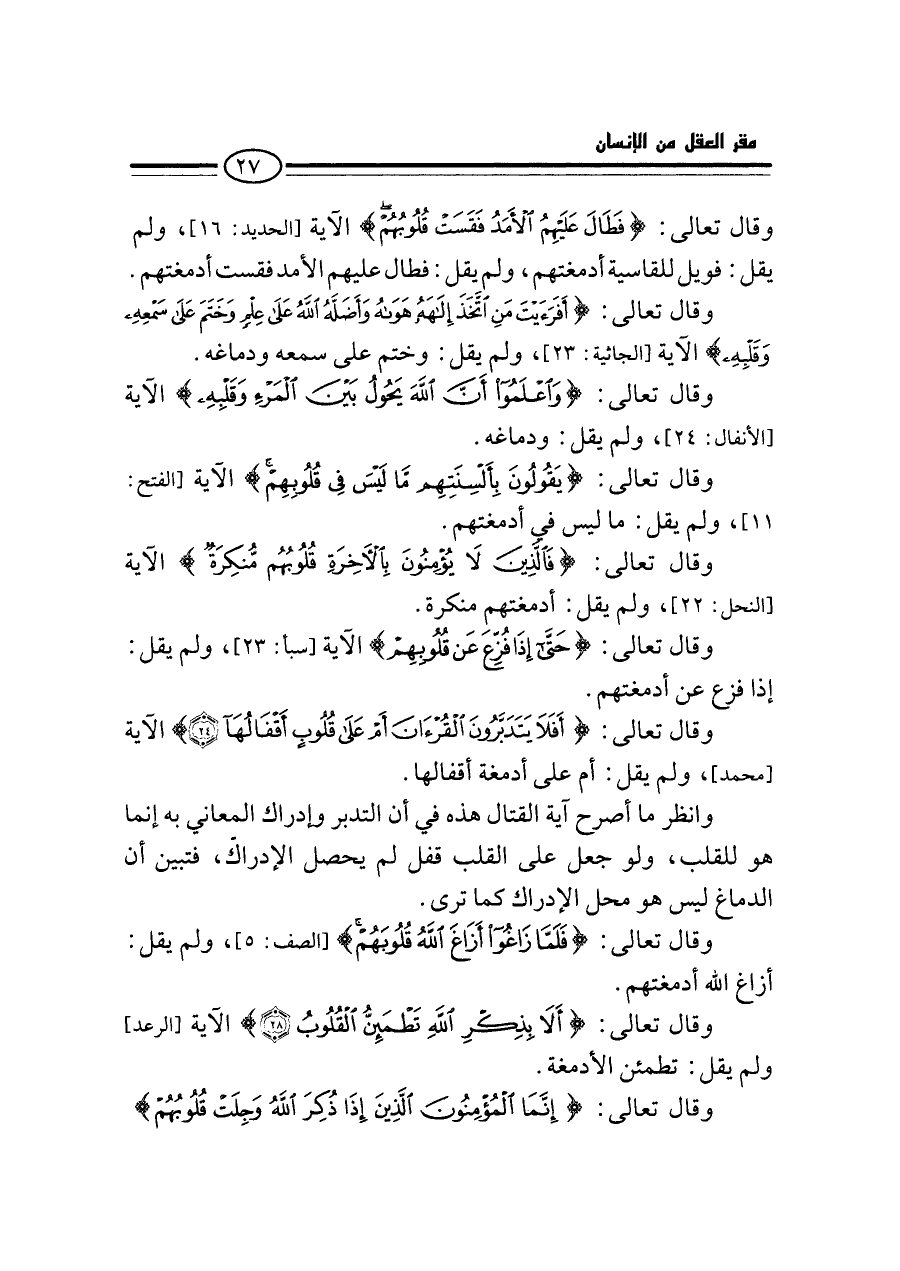 مقر العقل من الإنسان
٢٧
وقال تعالى: ﴿ فَطَالَ عَلَيْهِمُ ٱلْأَمَدُ فَقَسَتْ قُلُوبُهُمْۖ ﴾ الآية [الحديد: ١٦]، ولم
يقل: فويل للقاسية أدمغتهم، ولم يقل: فطال عليهم الأمد فقست أدمغتهم.
وقال تعالى: ﴿ أَفَرَءَيْتَ مَنِ ٱتَّخَذَ إِلَٰهَهُۥ هَوَىٰهُ وَأَضَلَّهُ ٱللَّهُ عَلَىٰ عِلْمٍ وَخَتَمَ عَلَىٰ سَمْعِهِۦ
وَقَلْبِهِۦ ﴾ الآية [الجاثية: ٢٣]، ولم يقل: وختم على سمعه ودماغه.
وقال تعالى: ﴿ وَٱعْلَمُوٓا۟ أَنَّ ٱللَّهَ يَحُولُ بَيْنَ ٱلْمَرْءِ وَقَلْبِهِۦ ﴾ الآية
[الأنفال: ٢٤]، ولم يقل: ودماغه.
وقال تعالى: ﴿ يَقُولُونَ بِأَلْسِنَتِهِم مَّا لَيْسَ فِى قُلُوبِهِمْۚ ﴾ الآية [الفتح:
١١]، ولم يقل: ما ليس في أدمغتهم.
وقال تعالى: ﴿ فَٱلَّذِينَ لَا يُؤْمِنُونَ بِٱلْءَاخِرَةِ قُلُوبُهُم مُّنكِرَةٌ ﴾ الآية
[النحل: ٢٢]، ولم يقل: أدمغتهم منكرة.
وقال تعالى: ﴿ حَتَّىٰٓ إِذَا فُزِّعَ عَن قُلُوبِهِمْ ﴾ الآية [سبأ: ٢٣]، ولم يقل:
إذا فزع عن أدمغتهم.
وقال تعالى: ﴿ أَفَلَا يَتَدَبَّرُونَ ٱلْقُرْءَانَ أَمْ عَلَىٰ قُلُوبٍ أَقْفَالُهَآ ٢٤ ﴾ الآية
[محمد]، ولم يقل: أم على أدمغة أقفالها.
وانظر ما أصرح آية القتال هذه في أن التدبر وإدراك المعاني به إنما
هو للقلب، ولو جعل على القلب قفل لم يحصل الإدراك، فتبين أن
الدماغ ليس هو محل الإدراك كما ترى.
وقال تعالى: ﴿ فَلَمَّا زَاغُوٓا۟ أَزَاغَ ٱللَّهُ قُلُوبَهُمْۚ ﴾ [الصف: ٥]، ولم يقل:
أزاغ الله أدمغتهم.
وقال تعالى: ﴿ أَلَا بِذِكْرِ ٱللَّهِ تَطْمَئِنُّ ٱلْقُلُوبُ ٢٨ ﴾ الآية [الرعد]
ولم يقل: تطمئن الأدمغة.
وقال تعالى: ﴿ إِنَّمَا ٱلْمُؤْمِنُونَ ٱلَّذِينَ إِذَا ذُكِرَ ٱللَّهُ وَجِلَتْ قُلُوبُهُمْ ﴾